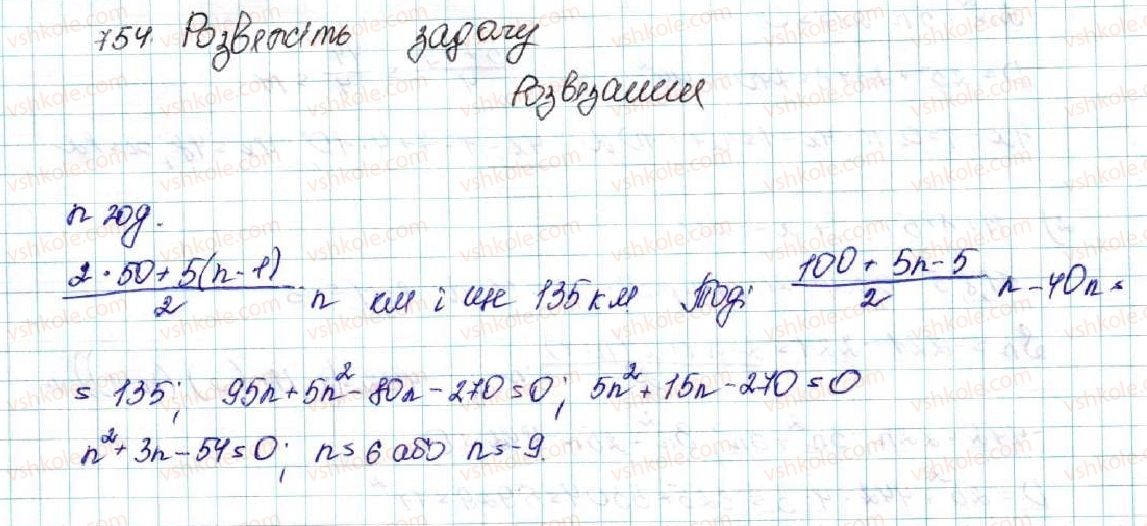 754. Розвяжіть задачу
Розвязання
n год.
(2·50+5(n-1))/2 · n км і ще 135 км. Тоді (100+5n-5)/2 n - 40n =
= 135; 95n+5n²-80n-270=0; 5n²+15n-270=0
n²+3n-54=0; n=6 або n=-9.